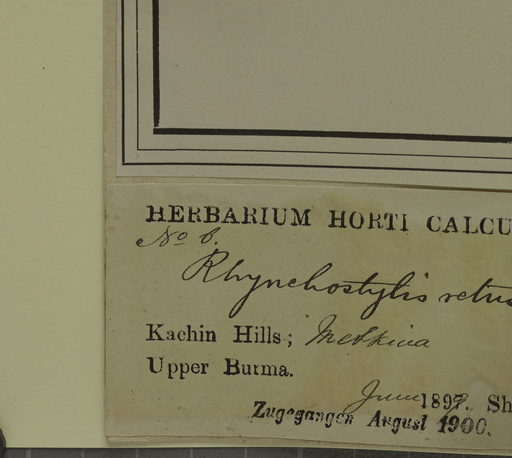 HERBARIUM HORTI CALCU
No 6.
Rhynchostylis retus
Kachin Hills; Metkina
Upper Burma.
June 1898. Sh
Zugegangen August 1900.